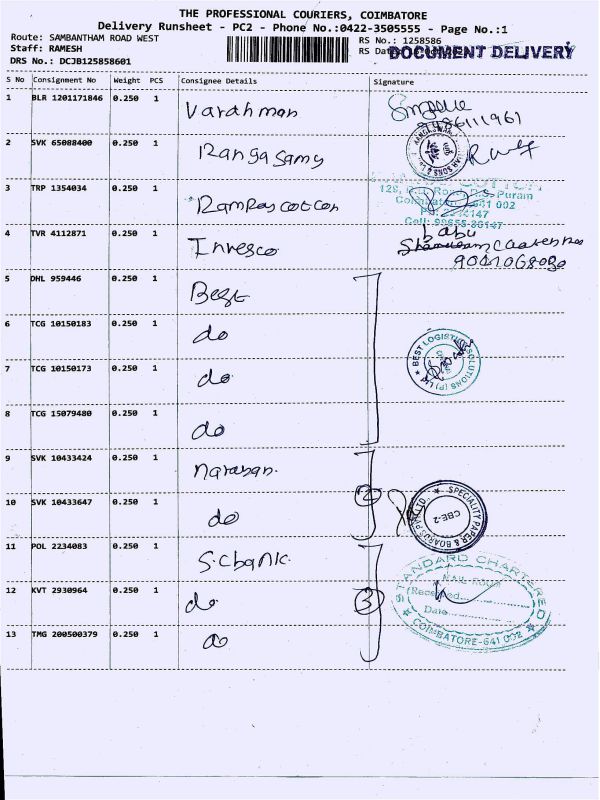 THE PROFESSIONAL COURIERS, COIMBATORE
Delivery Runsheet - PC2 - Phone No.:0422-3505555 - Page No.:1
Route: SAMBANTHAM ROAD WEST
RS No.: 1258586
Staff: RAMESH
RS Da
DOCUMENT DELIVERY
DRS No.: DCJB125858601
S No Consignment No Weight PCS Consignee Details Signature
1 BLR 1201171846 0.250 1 Varahman
9486111961
2 SVK 65088400 0.250 1 Rangasamy
3 TRP 1354034 0.250 1 Ramrascotton
4 TVR 4112871 0.250 1 Invesco
babu
5 DHL 959446 0.250 1 Best
6 TCG 10150183 0.250 1 do
BEST LOGISTIC SOLUTIONS (P) Ltd
7 TCG 10150173 0.250 1 do
8 TCG 15079480 0.250 1 do
9 SVK 10433424 0.250 1 narasan.
2
10 SVK 10433647 0.250 1 do
SPECIALITY PAPER & BOARDS PVT LTD.
CBE-2
11 POL 2234083 0.250 1 S.cbank.
12 KVT 2930964 0.250 1 do
3
STANDARD CHARTERED
MAIL-ROOM
Received
Date
COIMBATORE-641 002
13 TMG 200500379 0.250 1 do